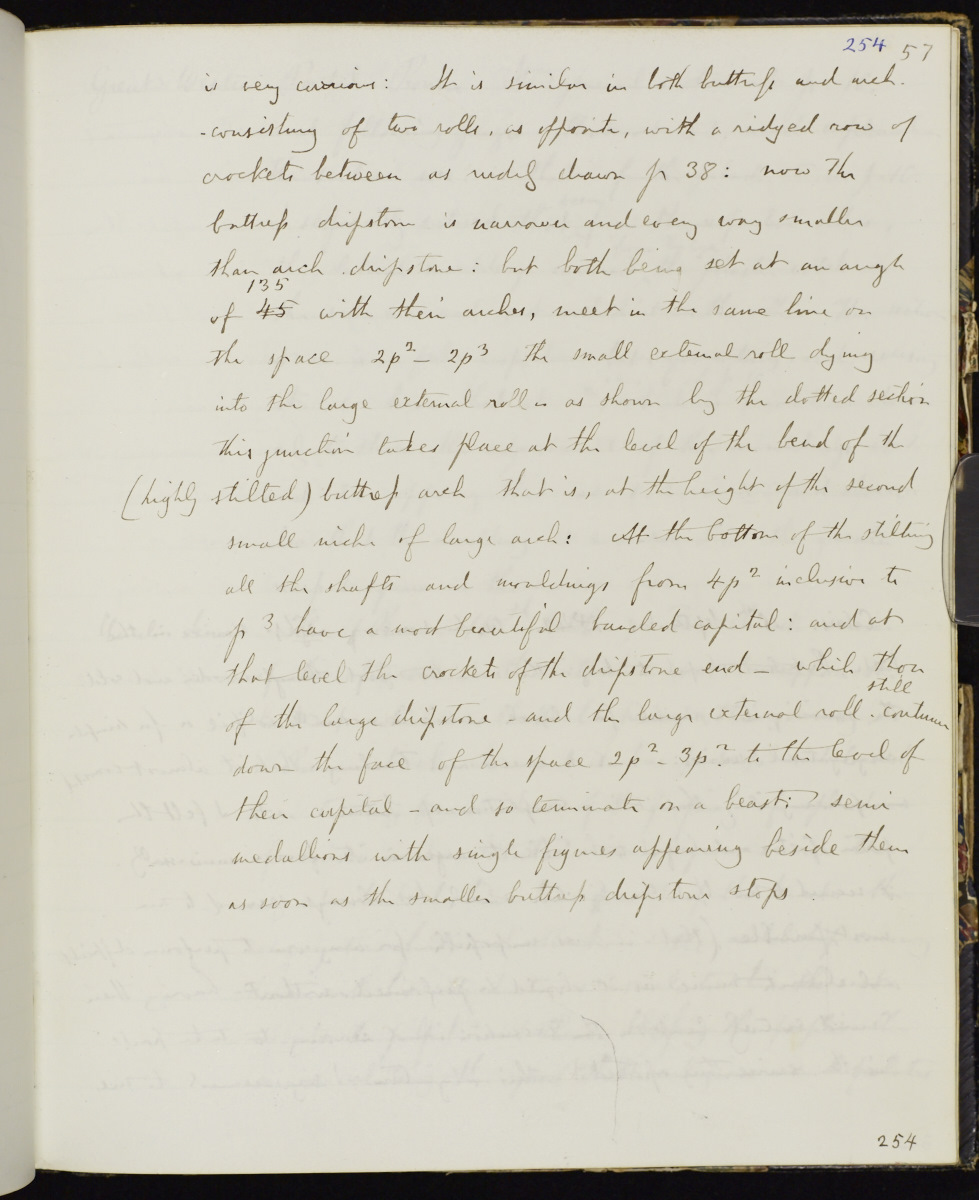 254 57
is very curious: It is similar in both buttress and arch.
- consisting of two rolls, as opposite, with a ridged row of
crockets between as rudely drawn p 38: now The
buttress dripstone is narrower and every way smaller
than arch dripstone: but both being set at an angle
135
of 45 with their arches, meet in the same line on
the space 2p2 - 2p3 the small external roll dying
into the large external roll as shown by the dotted section
this junction takes place at the level of the bend of the
(highly stilted) buttress arch that is, at the height of the second
small niche of large arch: At the bottom of the stilting
all the shafts and mouldings from 4p2 inclusive to
p3 have a most beautiful banded capital: and at
that level the crockets of the dripstone end - while those
still
of the large dripstone - and the large external roll. continue
down the face of the space 2p2 - 3p2. to the level of
their capital - and so terminate on a beast: semi
medallions with single figures appearing beside them
as soon as the smaller buttress dripstone stops.
254